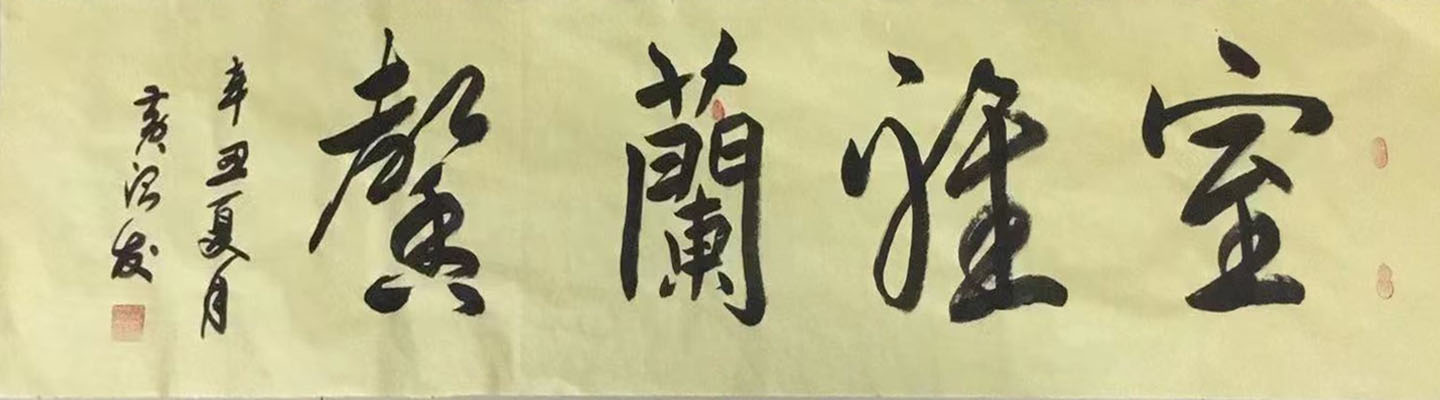 室雅蘭馨
辛丑夏月
黄治发